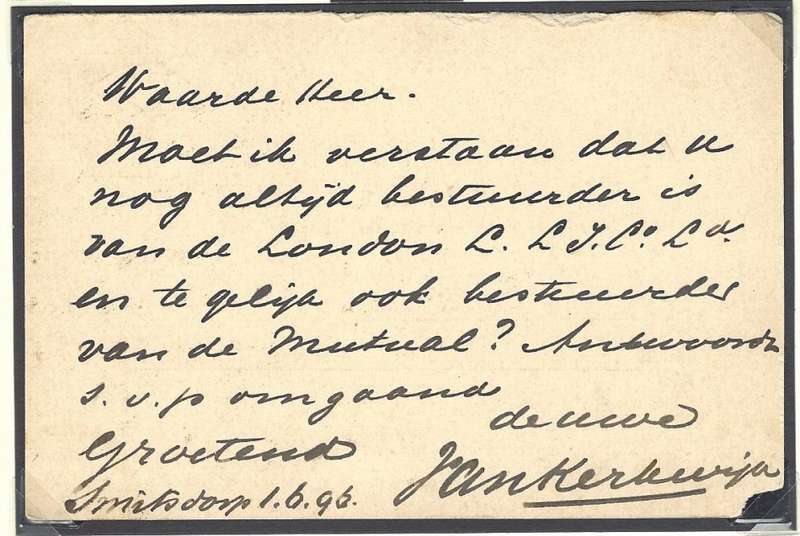 Waarde Heer.
Moet ik verstaan dat u
nog altijd bestuurder is
van de London L. L I. Co. Ld.
en te gelijk ook bestuurder
van de Mutual? Antwoordt
s.v.p omgaand
de uwe
Groetend
J van Kerkwijk
Smitsdorp 1.6.96.